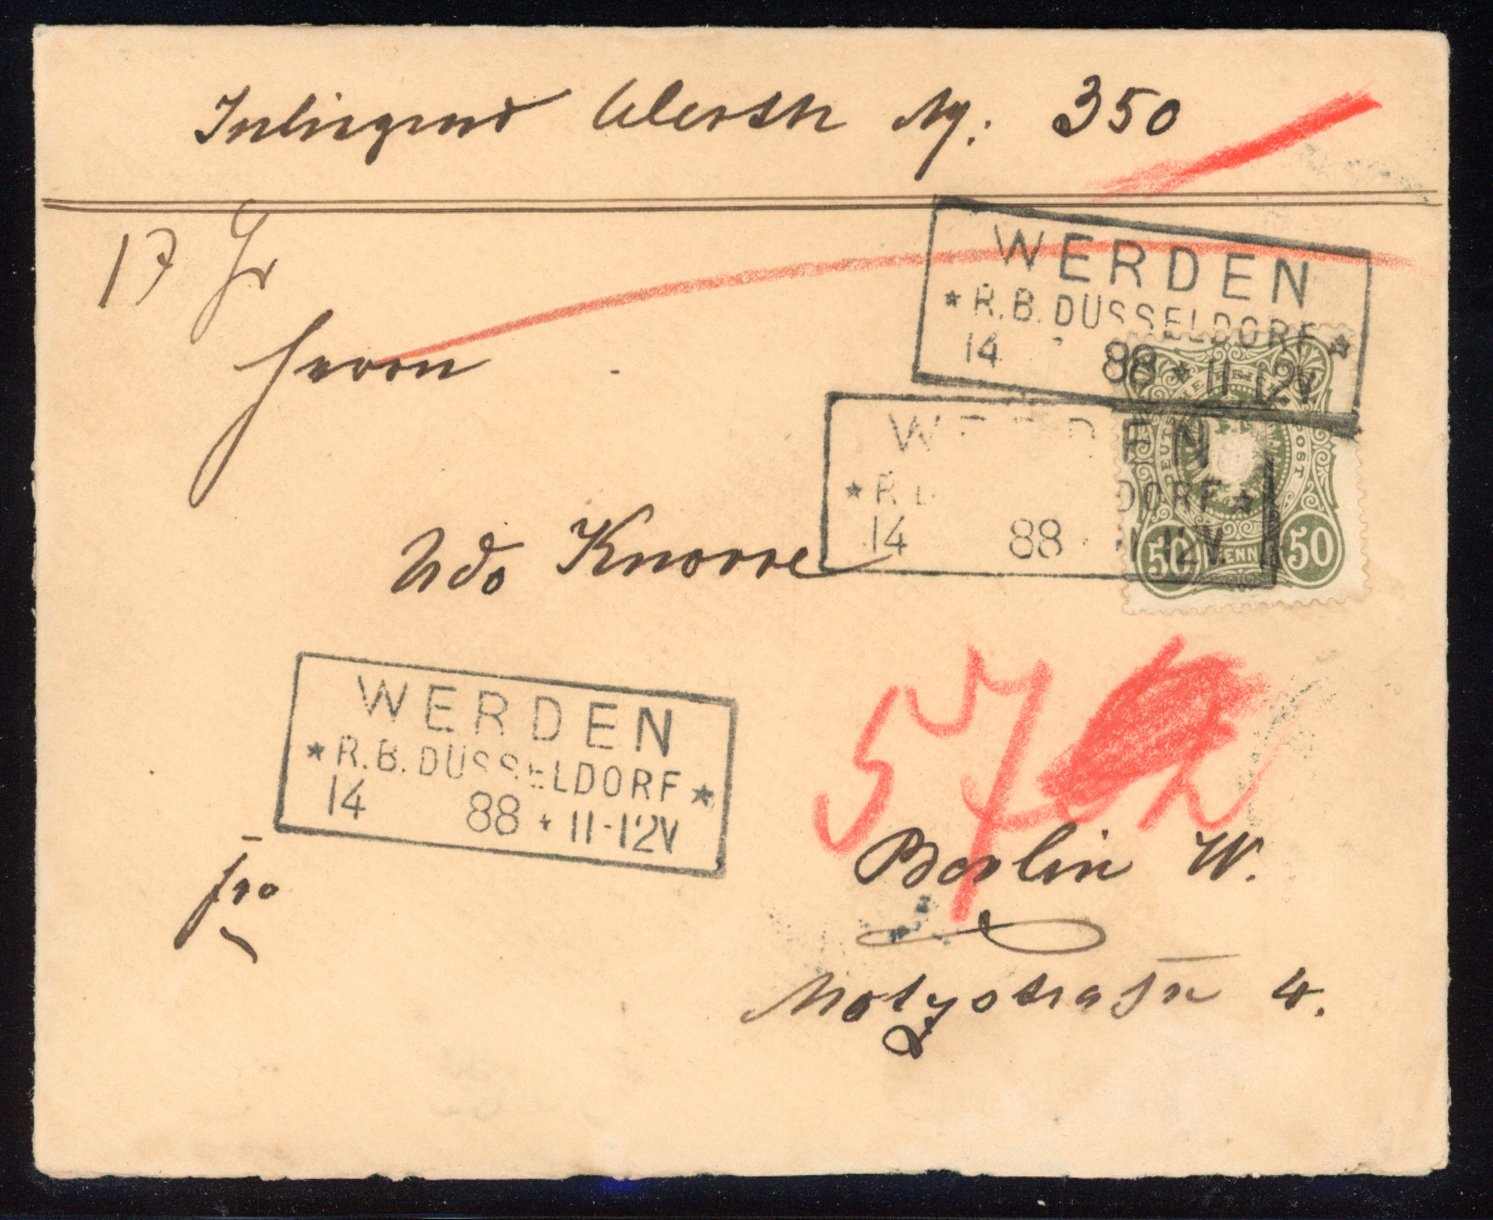 Inliegend Werth Mg: 350
17 Gr
WERDEN
* R.B. DÜSSELDORF *
14 88 * 11-12V.
Herrn
WERDEN
* R.B. DORF *
14 88 * 11-12V.
50 PFENNIG 50
Udo Knorre
WERDEN
* R.B. DÜSSELDORF *
14 88 * 11-12V
57
Berlin W.
fro
Motzstraße 4.